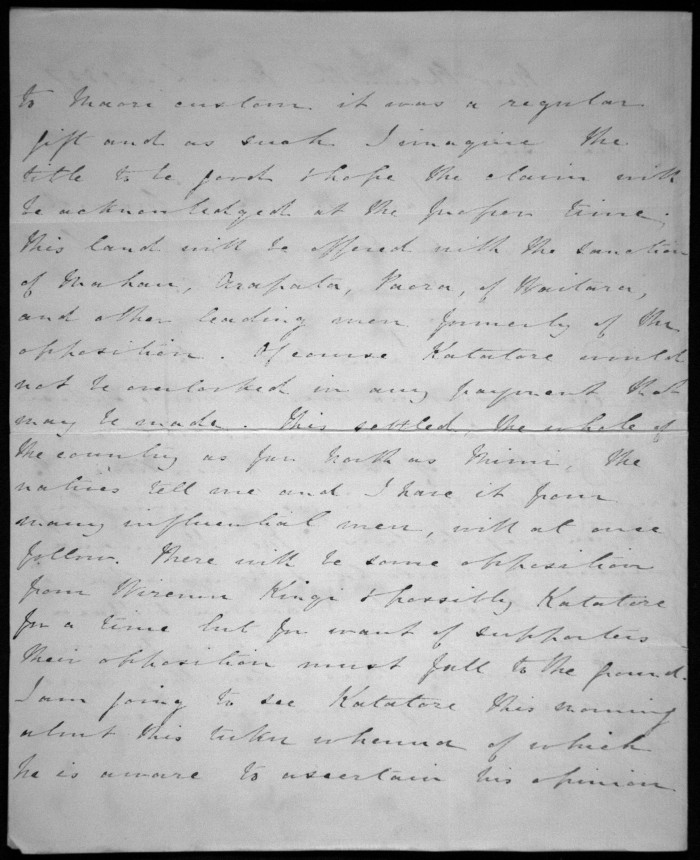 to Maori custom. it was a regular
gift and as such I imagine the
title to be good & hope the claim will
be acknowledged at the proper time.
This land will be offered with the sanction
of Mahau, Arapata, Paora, of Waitara,
and other leading men formerly of the
opposition. Of course Katatore would
not be overlooked in any payment that
may be made. This settled, the whole of
the country as far north as Mimi, the
natives tell me and I have it from
many influential men, will at once
follow. There will be some opposition
from Wiremu Kingi & possibly Katatore
for a time but for want of supporters
their opposition must fall to the ground.
I am going to see Katatore this morning
about this tuku whenua of which
he is aware to ascertain his opinion